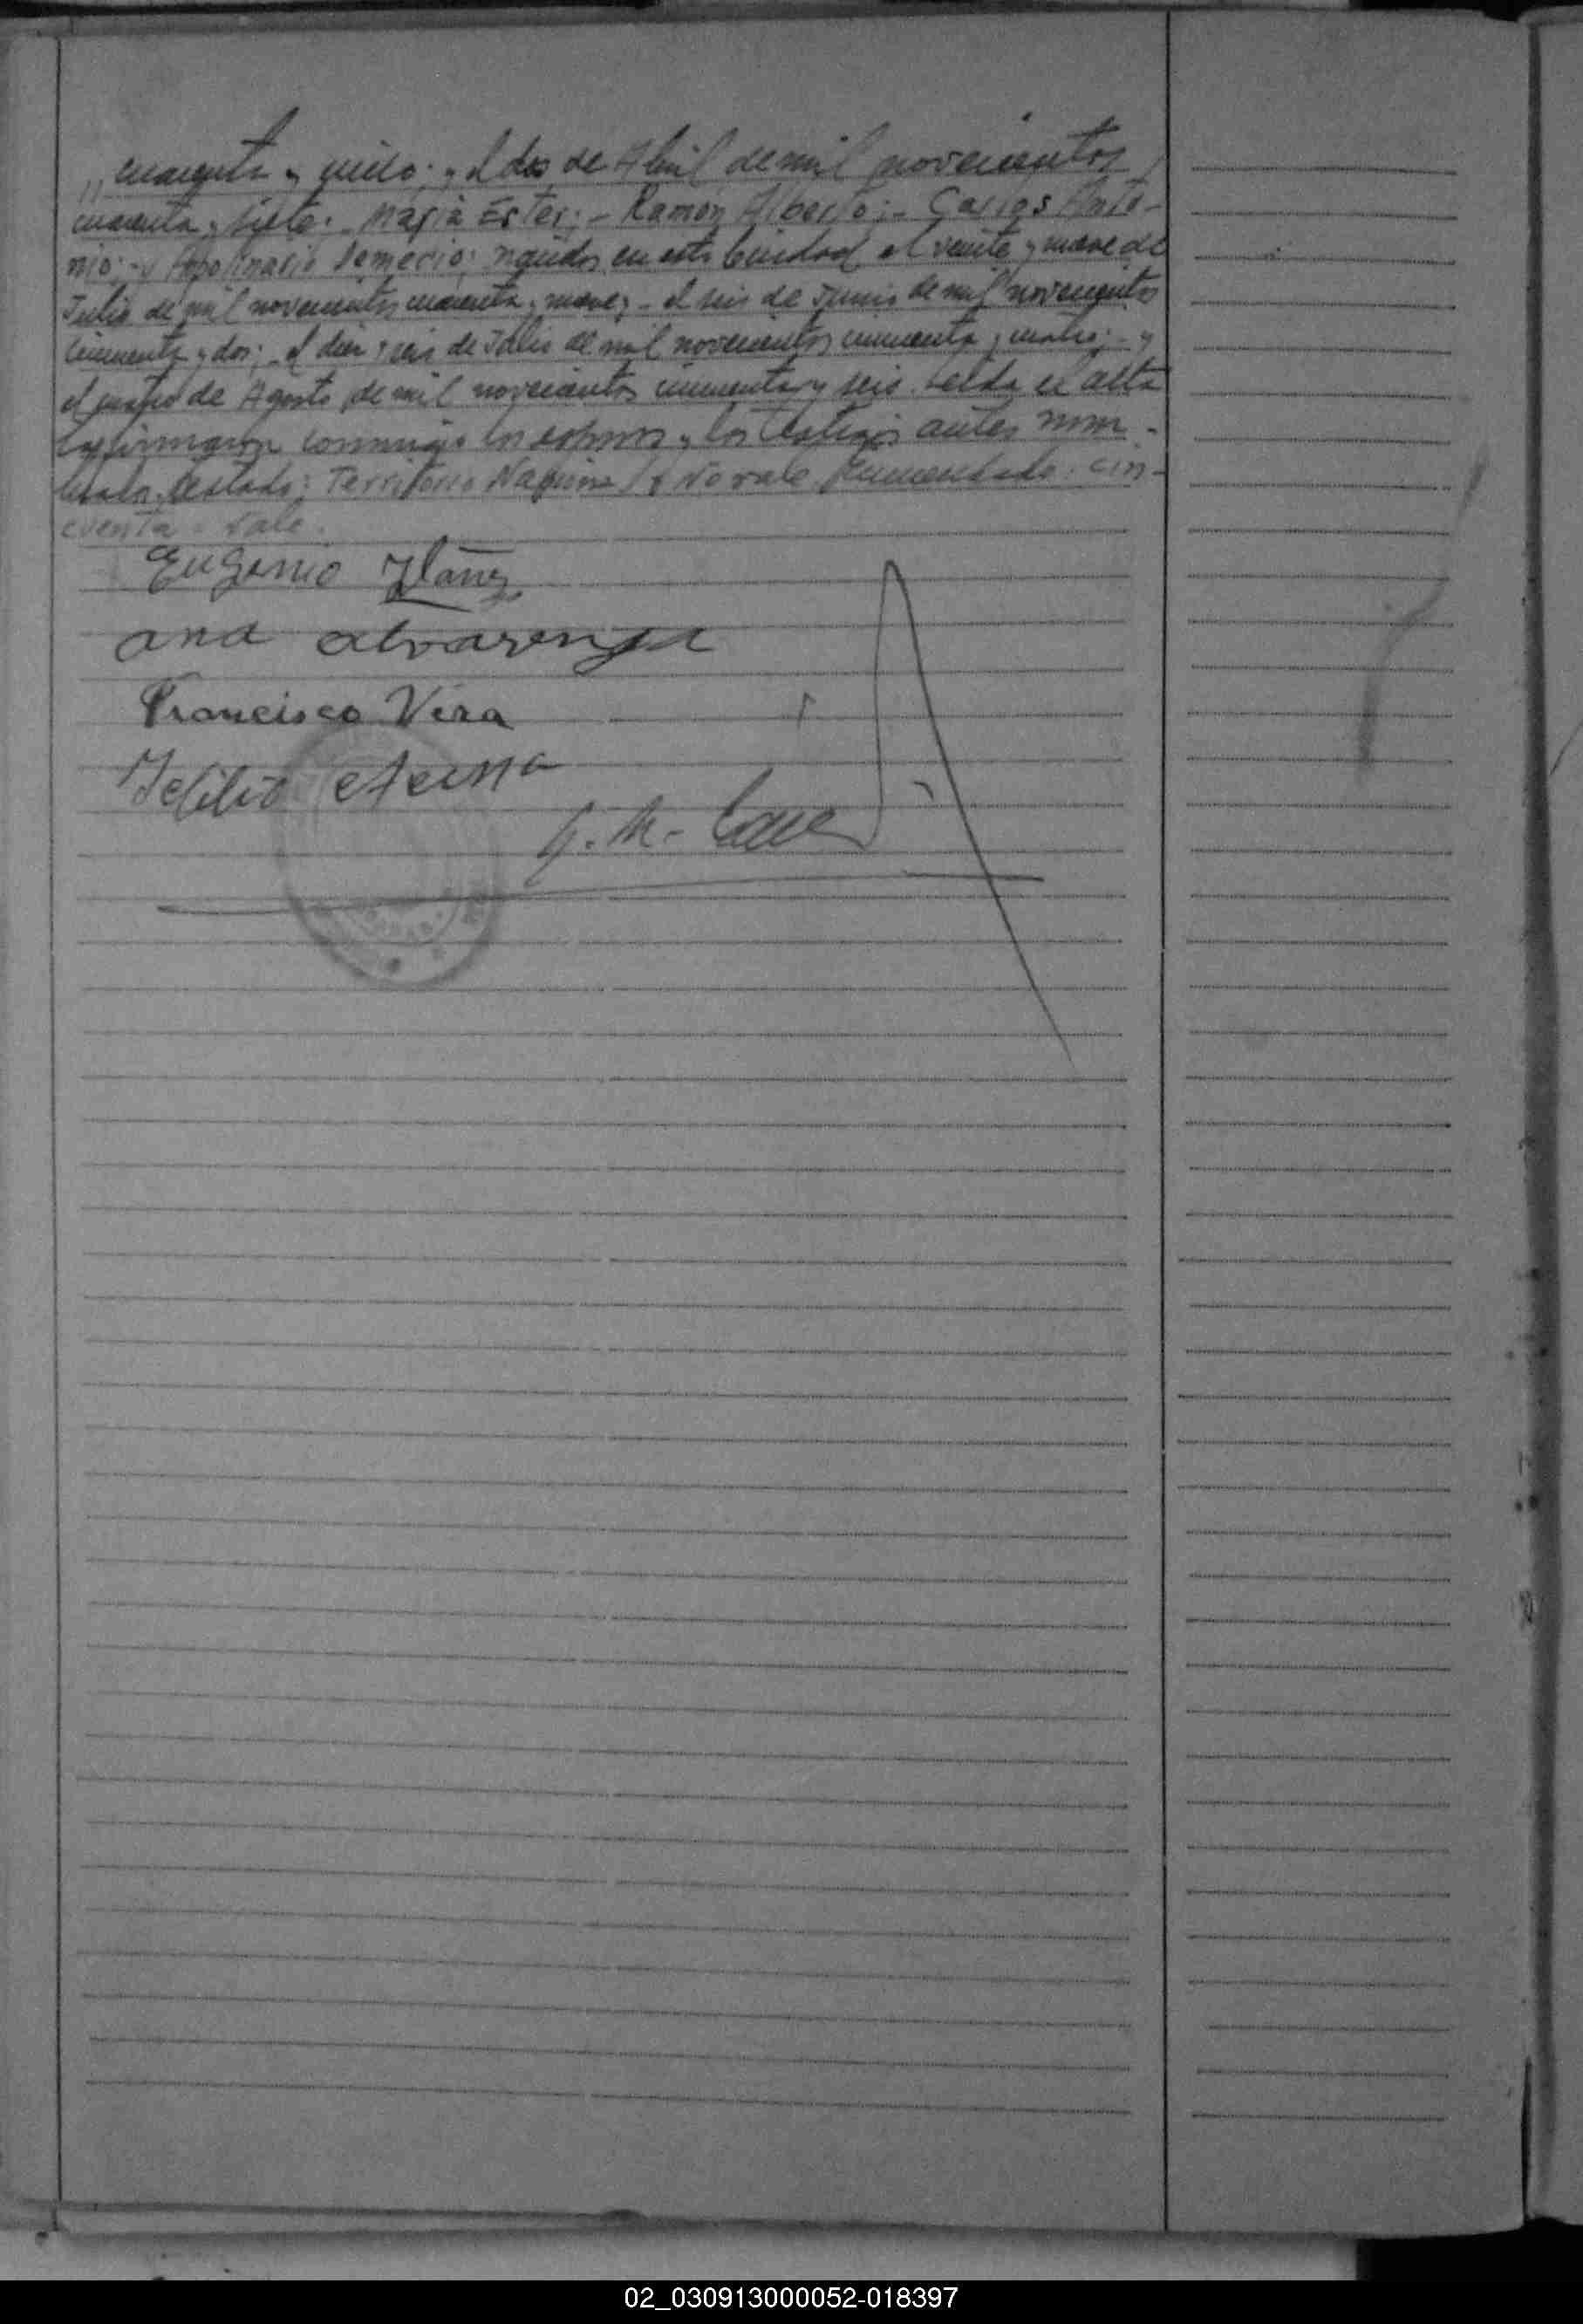 cuarenta y cinco; y el dos de Abril de mil novecientos
cuarenta y siete. María Ester; - Ramón Alberto; - Carlos Anto-
nio; - y Apolinario Demecio; nacidos en esta Ciudad el veinte y nueve de
Julio de mil novecientos cuarenta y nueve; - el seis de Junio de mil novecientos
cincuenta y dos; - el diez y seis de Julio de mil novecientos cincuenta y cuatro; - y
el cuatro de Agosto de mil novecientos cincuenta y seis. Leída el acta
la firmaron conmigo los esposos y los testigos antes nom-
brados. Testado: Territorio Nacional No vale. Enmendado: cin-
cuenta = Vale.
Eugenio
ana alvarenga
Francisco Vera
02_030913000052-018397